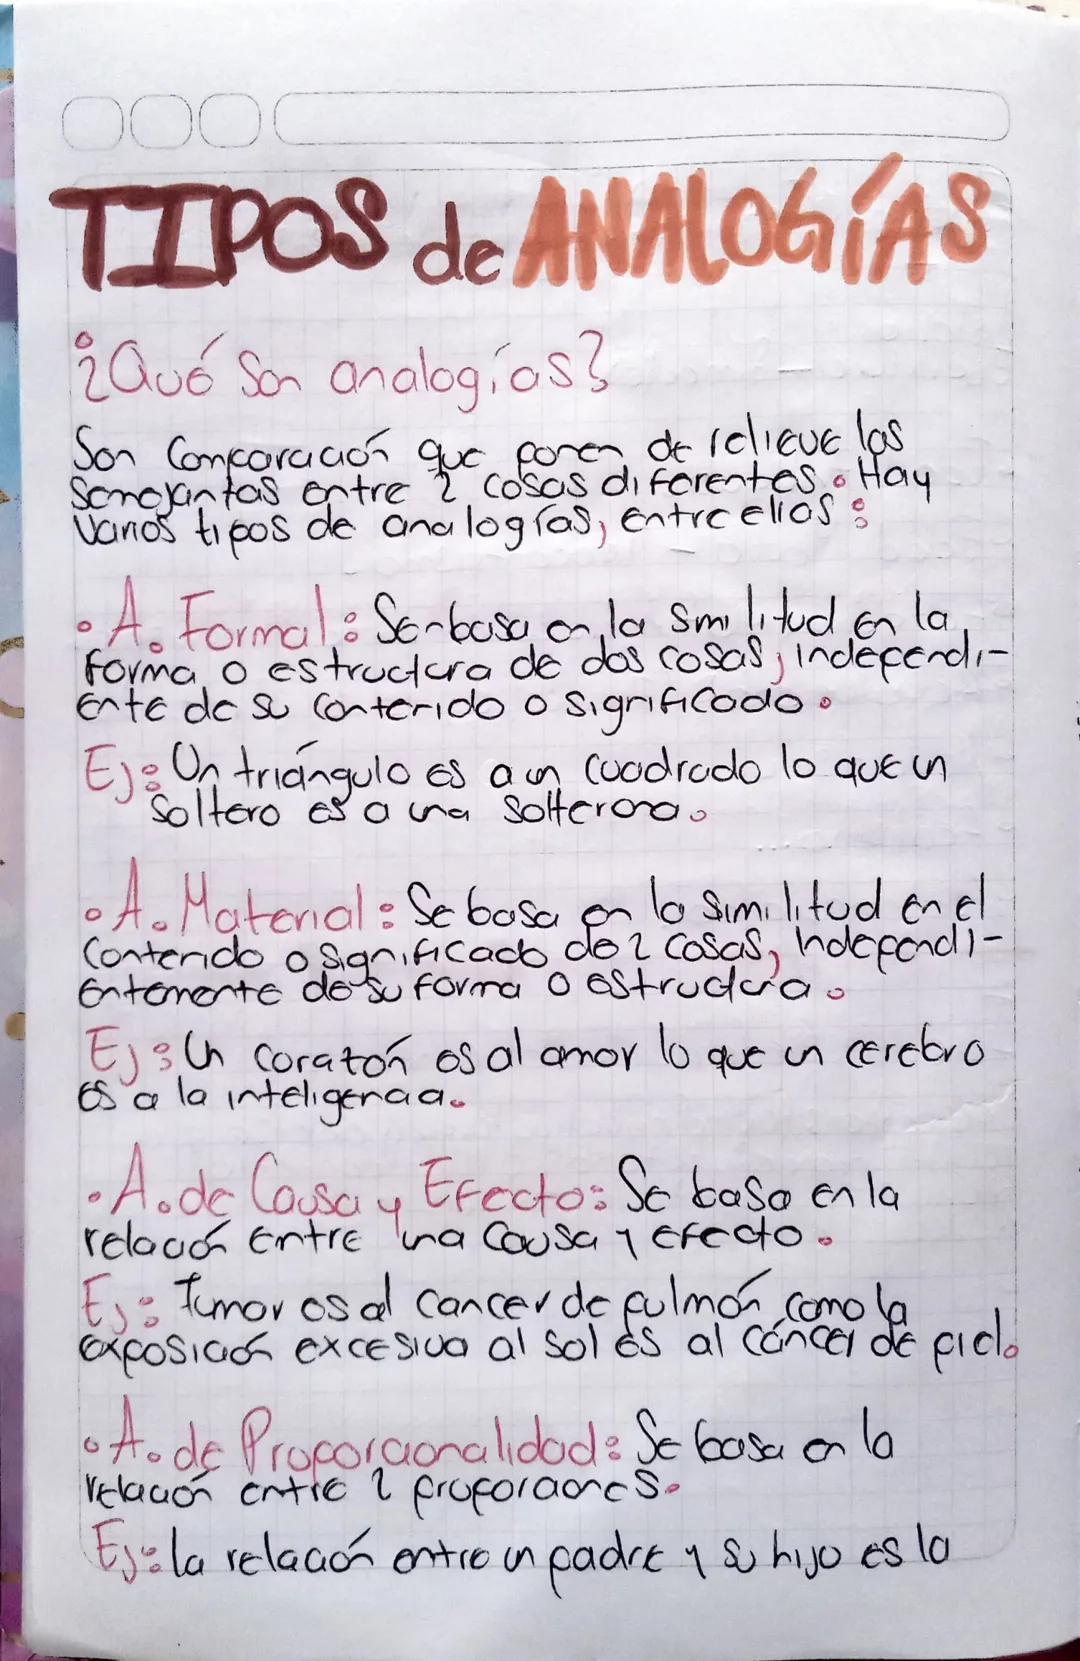 TIPOS de ANALOGÍAS
¿Qué son analogías?
Son Comparación que ponen de relieve las
semejantas entre 2 cosas diferentes. Hay
varios tipos de analogías, entre ellos:
• A. Formal: Se basa en la similitud en la
forma o estructura de dos cosas, independi-
ente de su contenido o significado.
Ej: Un triángulo es a un cuadrado lo que un
soltero es a una solterona.
• A. Material: Se basa en la similitud en el
contenido o significado de 2 cosas, independi-
entemente de su forma o estructura.
Ej: Un corazón es al amor lo que un cerebro
es a la inteligencia.
• A. de Causa y Efecto: Se basa en la
relación entre una causa y efecto.
Ej: Fumar es al cancer de pulmón como la
exposición excesiva al sol es al cáncer de piel.
• A. de Proporcionalidad: Se basa en la
relación entre 2 proporciones.
Ej: la relación entre un padre y su hijo es la